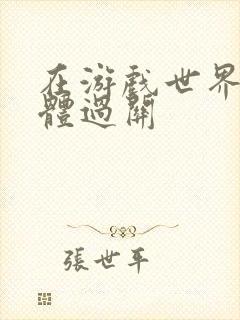 在游戲世界
體過關
張世平